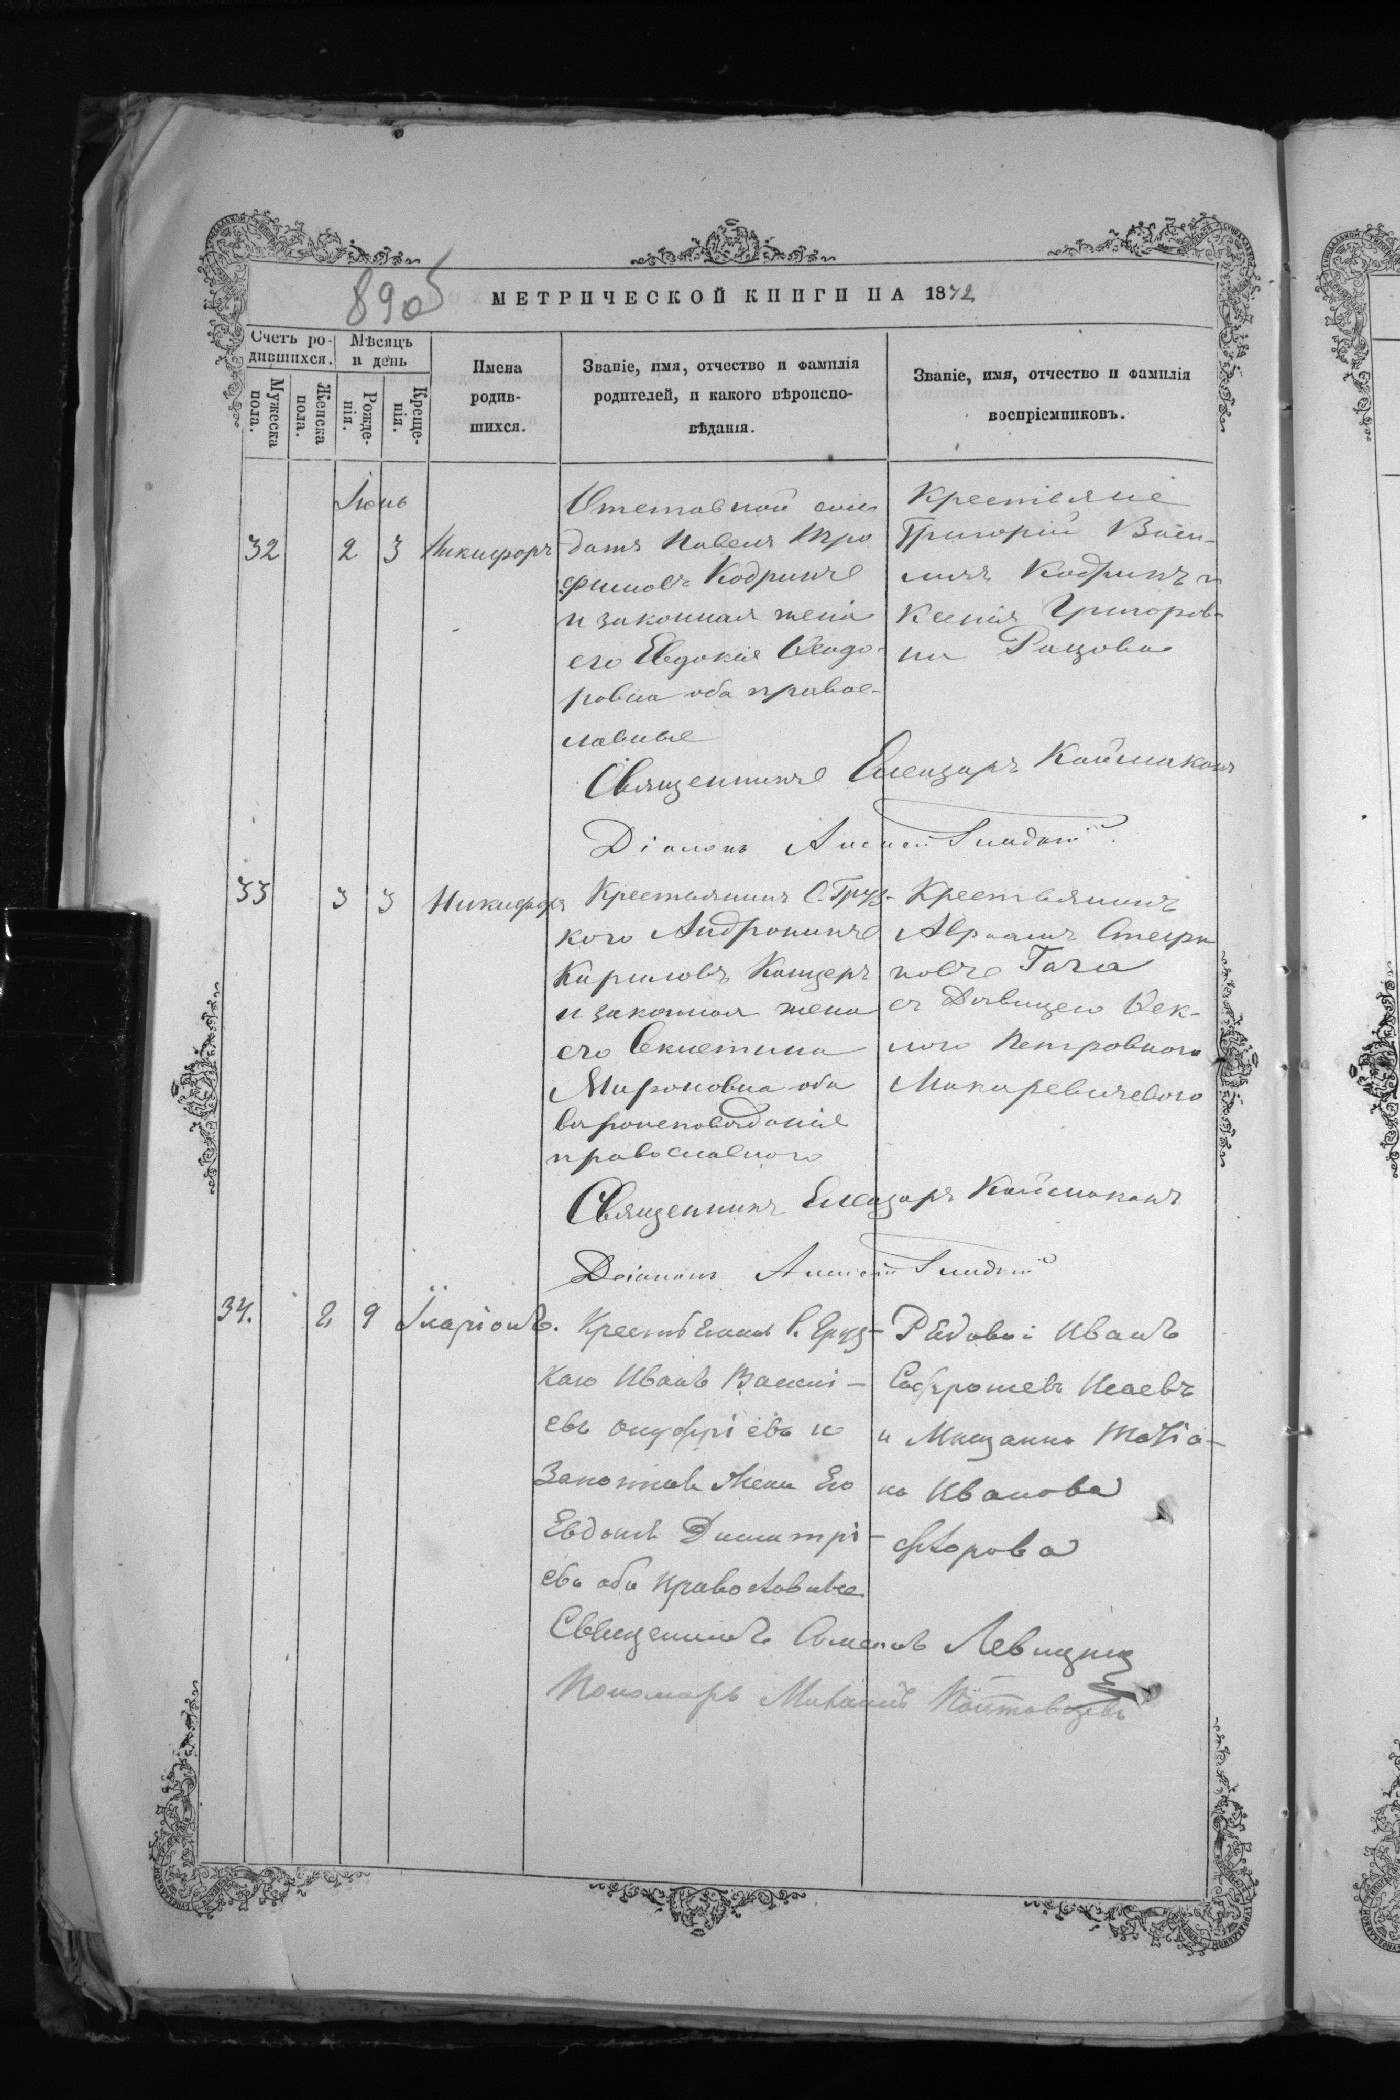 89об
МЕТРИЧЕСКОЙ КНИГИ НА 1872
Счетъ родившихся.
Мѣсяцъ и день
Мужеска пола.
Женска пола.
Рожденія.
Крещенія.
Имена
родив-
шихся.
Званіе, имя, отчество и фамилія
родителей, и какого вѣроиспо-
вѣданія.
Званіе, имя, отчество и фамилія
воспріемниковъ.
Іюнь
32
2
3
Никифоръ
Отставной сол
датъ Павелъ Тро
фимовъ Кодринъ
и законная жена
его Евдокія Ѳеодо-
ровна оба правос-
лавные
Крестьяне
Григорій Васи-
Кодринъ и
Ксенія Григоров-
на Рацова
Священникъ Елеазаръ Каймаканъ
Діаконъ Алексѣй
33
3
3
Никифоръ
Крестьянинъ С. Груз-
кого Андроникъ
Кириловъ Концеръ
и законная жена
его
Мироновна оба
вѣроисповѣданія
православного
Крестьянинъ
Авраамъ
Гача
съ Дѣвицею Ѳек-
лою Петровною
Макаревичевою
Священникъ Елеазаръ Каймаканъ
Діаконъ Алексѣй
34.
8
9
Іларіонъ.
каго Иванъ Васил-
евъ Онуфріевъ и
Законная Жена Его
Димитрі-
ева оба православные
Рядовой Иванъ
Исаевъ
и Мещанка Татіа-
на Иванова
Флорова
Священникъ Левицкій
Пономарь Михаилъ